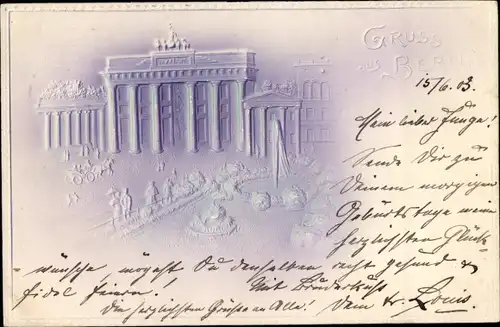 GRUSS
AUS BERLIN
15/6.03.
Mein lieber Junge!
Sende Dir zu
Deinem morgigen
Geburtstage meine
herzlichsten Glück-
wünsche, mögest Du denselben recht gesund &
fidel feiern! Mit Bruderkuss
Die herzlichsten Grüsse an Alle! Dein tr. Louis.